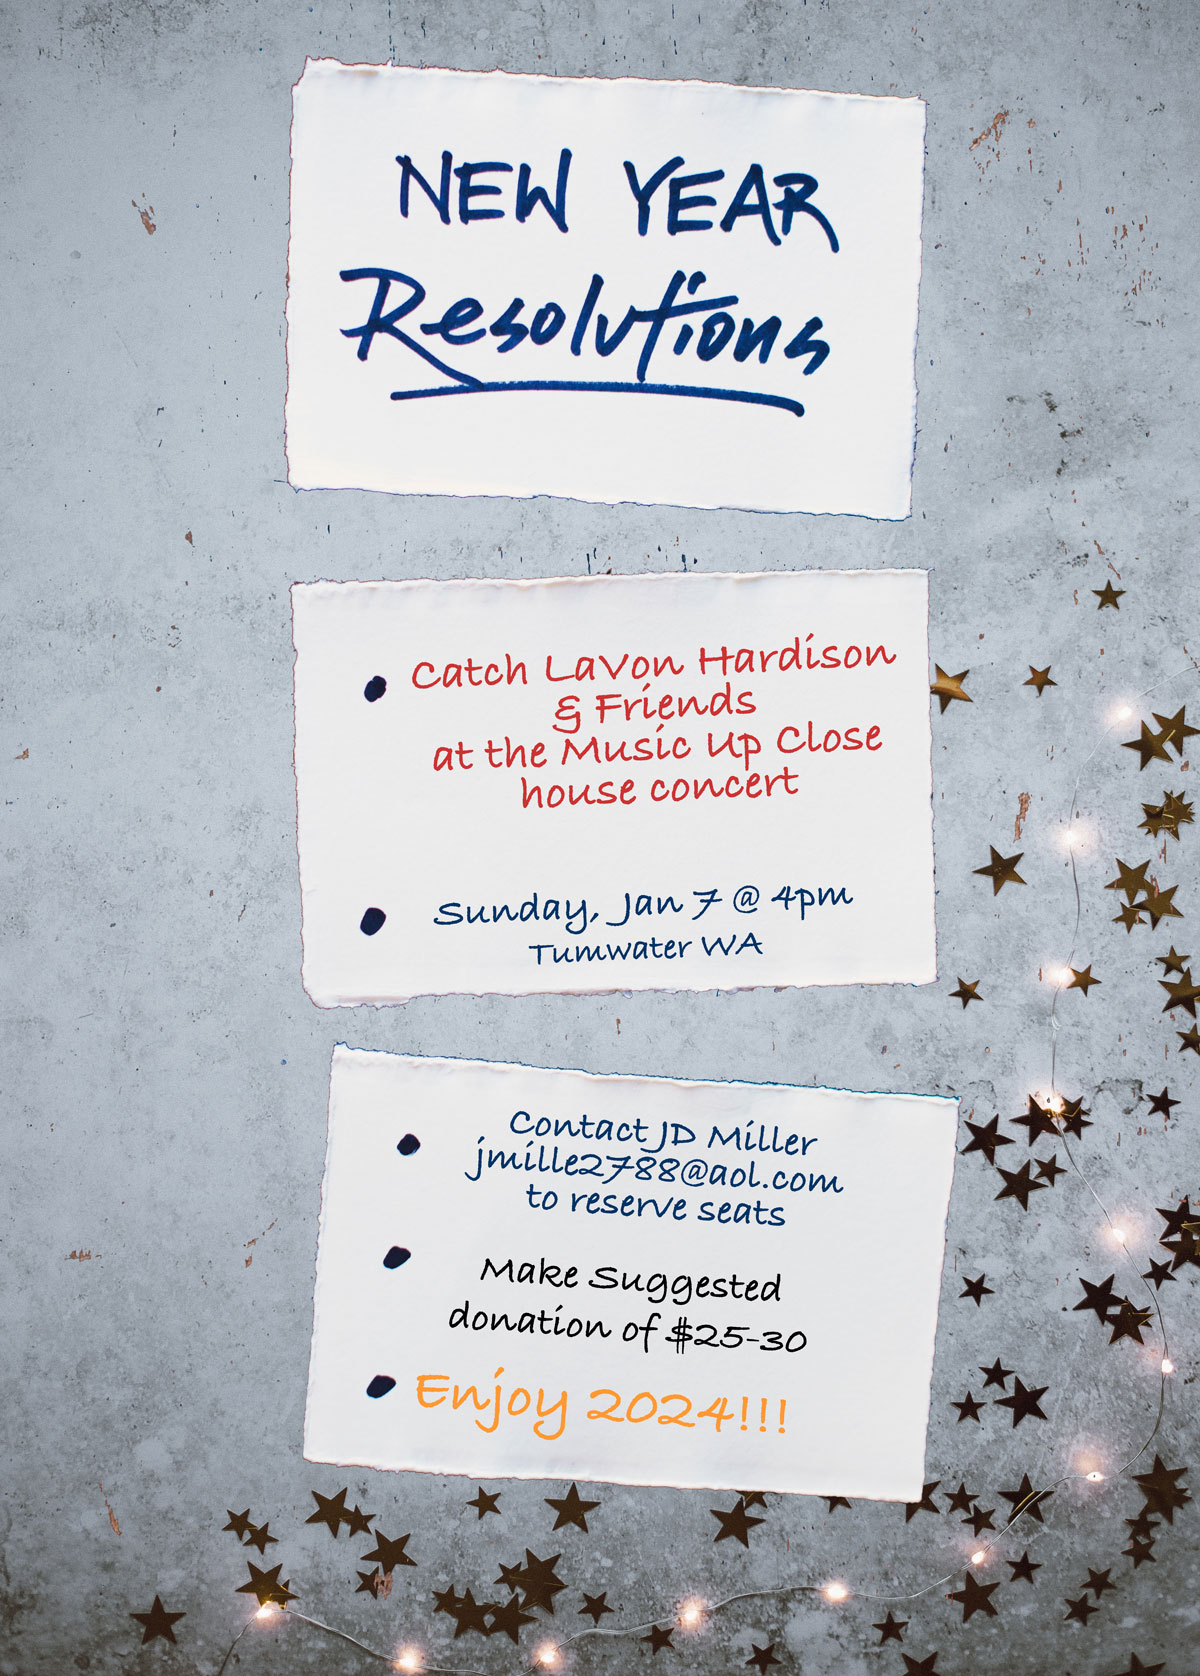 NEW YEAR
Resolutions
Catch LaVon Hardison
& Friends
at the Music Up Close
house concert
Sunday, Jan 7 @ 4pm
Tumwater WA
Contact JD Miller
jmille2788@aol.com
to reserve seats
Make Suggested
donation of $25-30
Enjoy 2024!!!